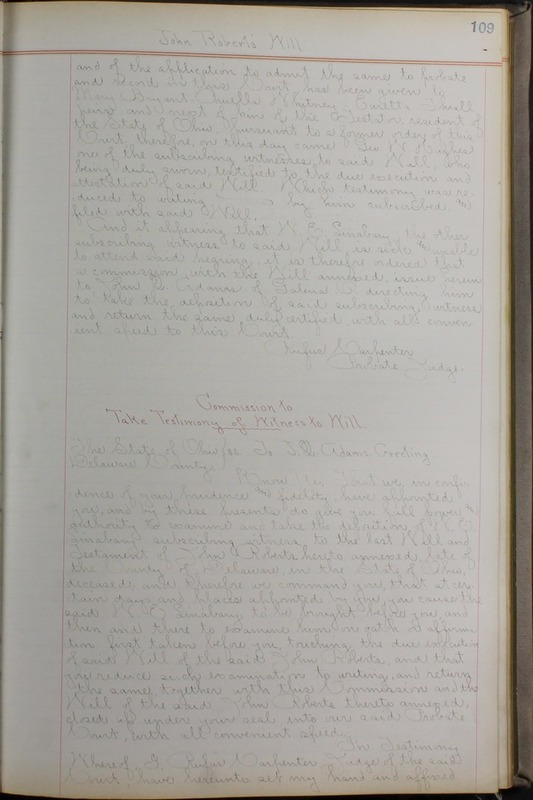 109
John Roberts Will
and of the application to admit the same to probate
and record in this Court has been given to
Mary Bryant, Luella Whitney, Thrall
heirs and next of kin of the Testator resident of
the State of Ohio pursuant to a former order of this
Court, therefore, on this day came Geo W Hughes
one of the subscribing witnesses to said Will, who
being duly sworn, testified to the due execution and
attestation of said Will. Which testimony was re-
duced to writing by him subscribed and
filed with said Will.
And it appearing that the other
subscribing witness to said Will is sick and unable
to attend said hearing, it is therefore ordered that
a commission, with the Will annexed, issue herein
to John Adams of Galena O directing him
to take the deposition of said subscribing witness
and return the same duly certified with all conven-
ient speed to this Court.
Rufus Carpenter
Probate Judge.
Commission to
Take Testimony of Witness to Will.
The State of Ohio ss. To J. Q. Adams Greeting
Delaware County
Know Ye, That we, in confi-
dence of your prudence and fidelity, have appointed
you, and by these presents do give you full power and
authority to examine and take the deposition of
subscribing witness to the last Will and
Testament of John Roberts hereto annexed, late of
the County of Delaware, in the State of Ohio,
deceased, and therefore we command you, that at cer-
tain days and places appointed by you, you cause the
said to be brought before you and
then and there to examine him on oath or affirma-
tion first taken before you, touching the due execution
of said Will of the said John Roberts, and that
you reduce such examination to writing, and return
the same, together with this Commission and the
Will of the said John Roberts thereto annexed,
closed up under your seal, into our said Probate
Court, with all convenient speed.
In Testimony
Whereof, I, Rufus Carpenter Judge of the said
Court, have hereunto set my hand and affixed